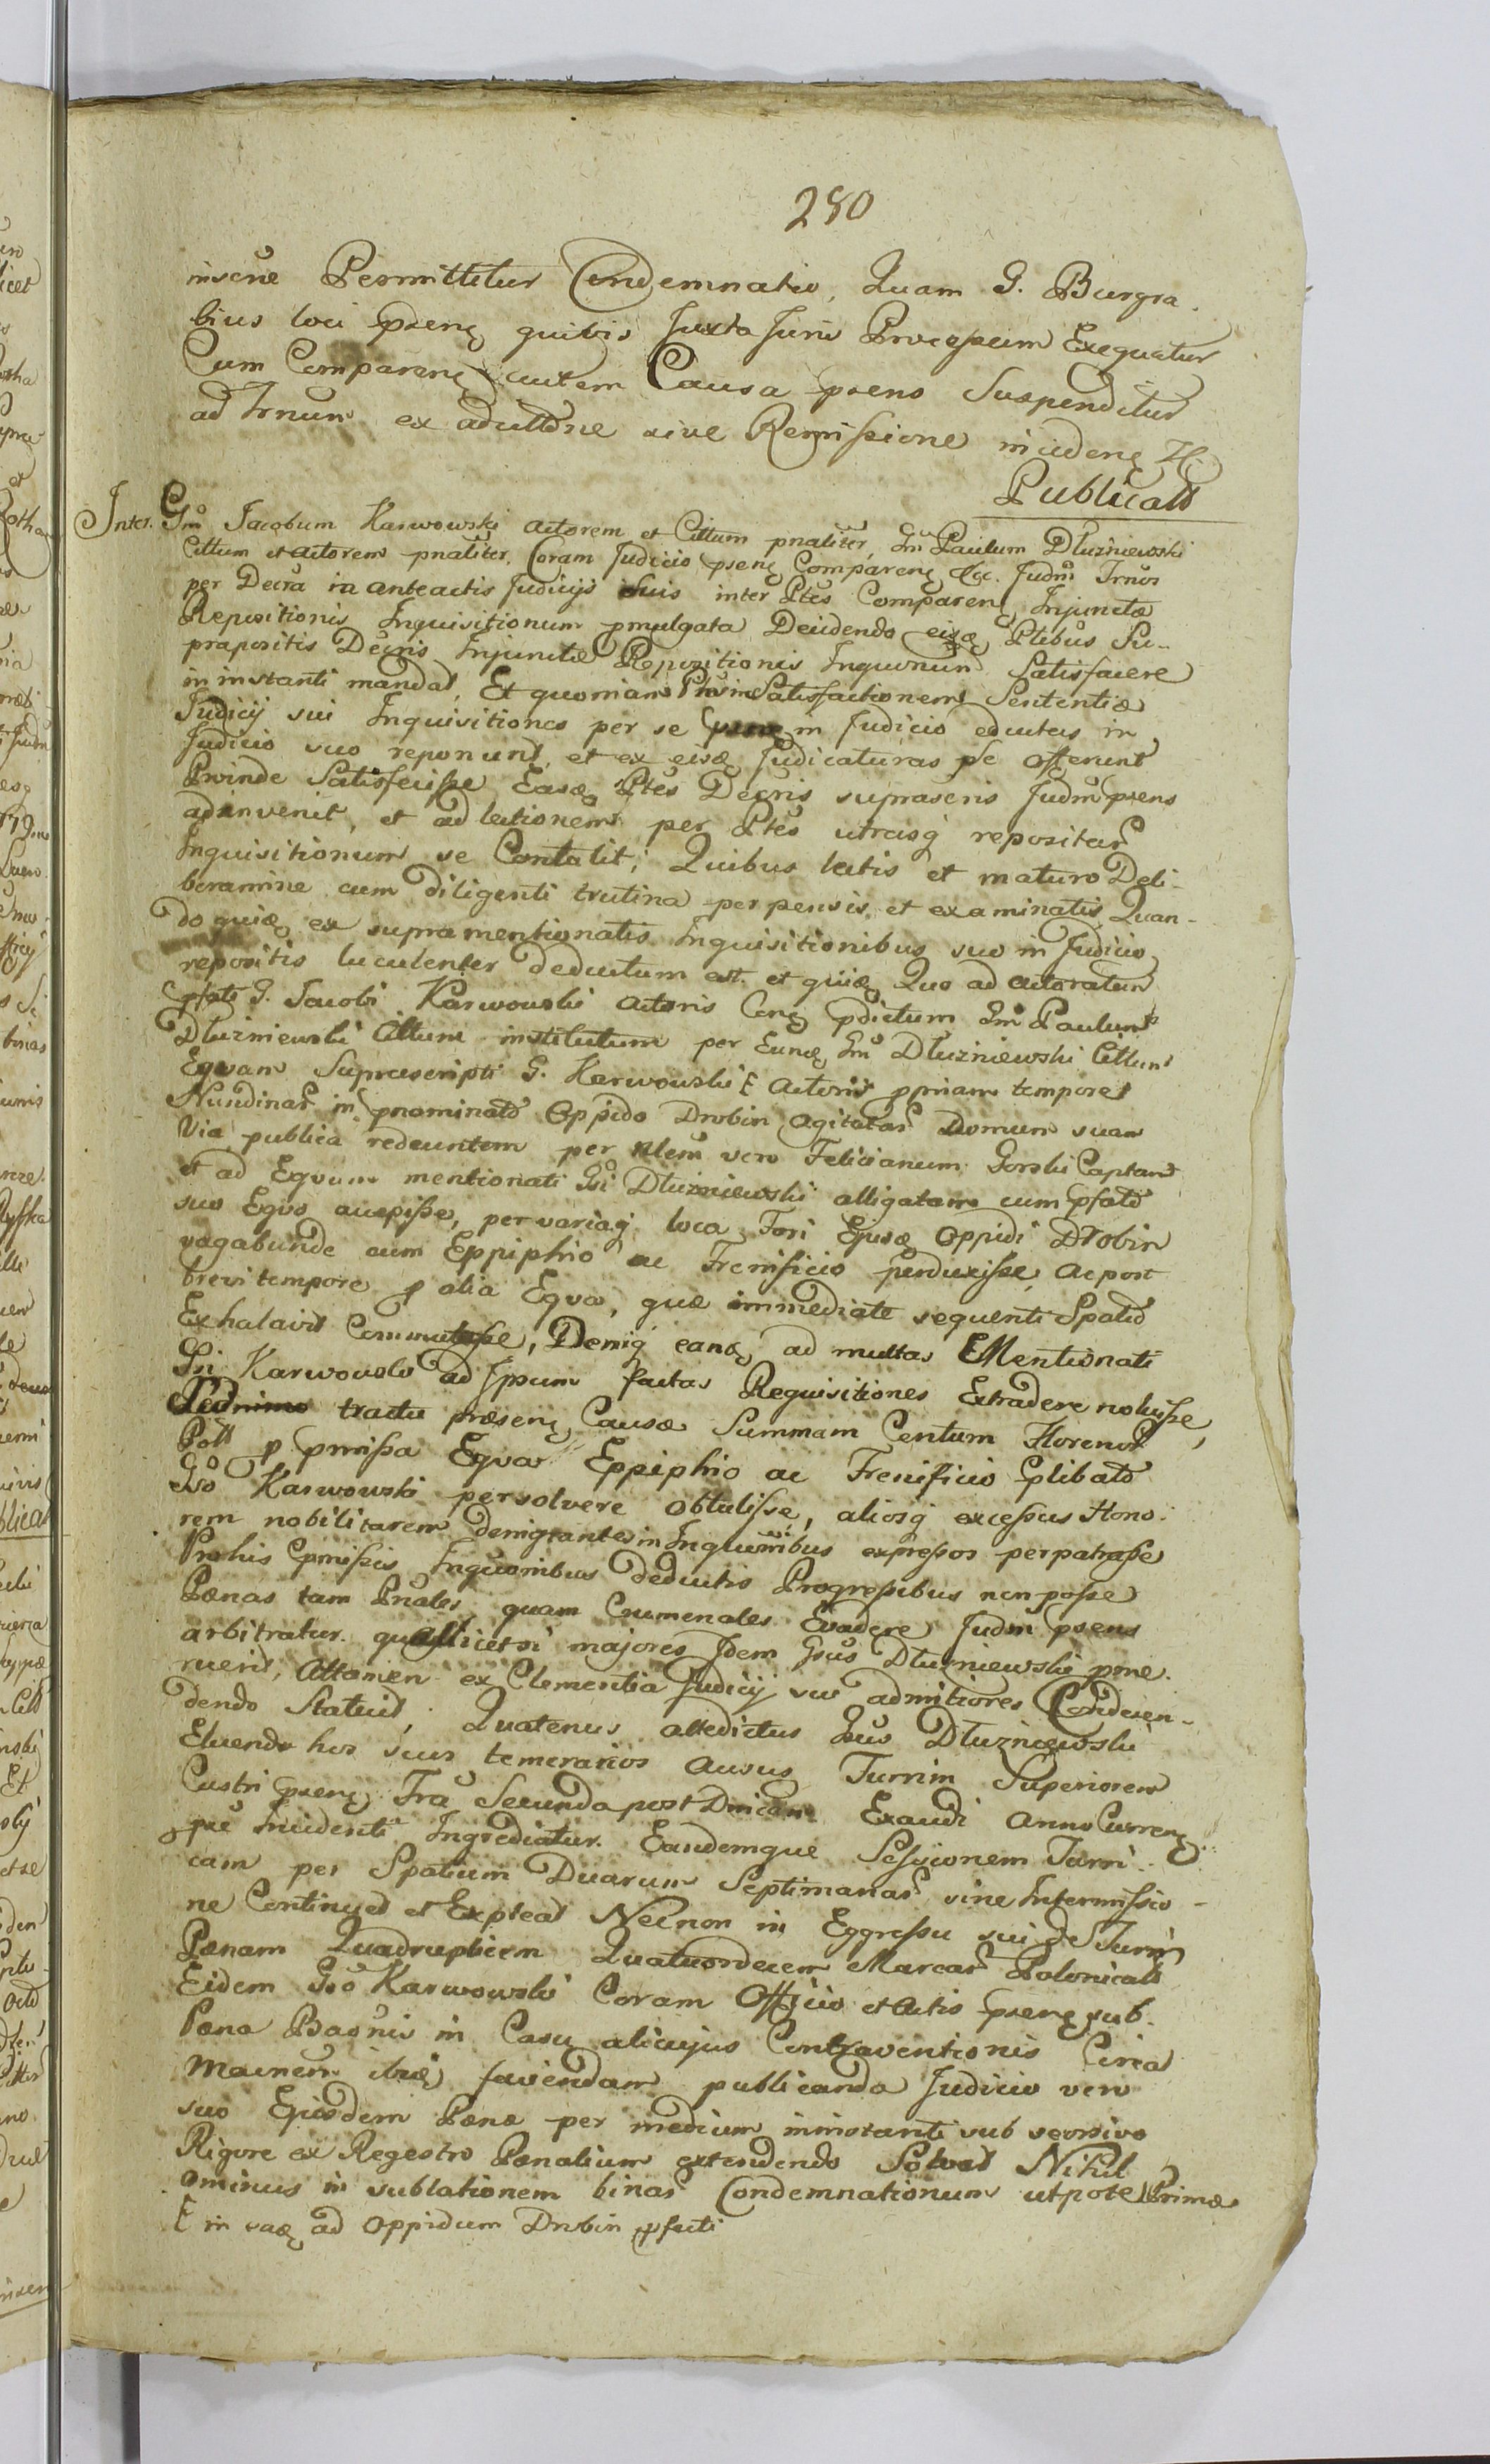 280
insCne Permittitur Condemnatio, Quam G. Burgra-
bius loci psenq quibis Juxta Juris Processum Exequatur
Cum Comparenq autem Causa psens Suspenditur
ad Trnum ex adultone sive Remissione incidenq H
Publicatt
Inter. Gsm Jacobum Karwowski actorem et Cittum pnaliter, Gsm Paulum Dłuzniewski
Cittum et actorem pnaliter. Coram Judicio psenq Comparenq &c. Judm Trnus
per Decra in anteactis Judicijs suis inter Ptes Comparenq Injunctæ
Repositionis Inquisitionum pmulgata Decidendo eisq Ptibus Su-
prapositis Decris Injunctæ Repositionis Inquonum Satisfacere
in instanti mandat, Et quoniam Ptes in Satisfactionem Sententiæ
Judicij sui Inquisitiones per se in Judicio eductas in
Judicio suo reponunt, et ex eisq Judicaturas se offerunt
Proinde Satisfecisse Easq Ptes Decris suprascris Judm psens
adinvenit, et ad lectionem per Ptes utrasq repositar
Inquisitionum se Contulit; Quibus lectis et maturo Deli-
beramine cum diligenti trutina perpensis et examinatis, Quan-
do quiq ex supramentionatis Inquisitionibus suo in Judicio
repositis luculenter deductum est et quiq Quo ad actoratum
pfati G. Jacobi Karwowski actoris Cenq pdictum Gsm Paulum
Dłuzniewski Cittum institutum per Eunq Gsm Dłuzniewski Cittum
Equam Suprascripti G. Karwowski ₤ actoris ppriam tempore
Nundinar in pnominato Oppido Drobin agitatar Domum suam
Via publica redeuntem per Nlem vero Felicianum Gorski Captam
et ad Equum mentionati Gsi Dłuzniewski alligatam cum pfato
suo Equo accepisse, per variaq loca Fori Ejusq Oppidi Drobin
vagabunde cum Eppiphio ac Frenificio perduxisse, ac post
brevi tempore p alia Equa, quæ immediate sequenti Spatio
Exhalavit Commutasse, Deniq eanq ad multas Mentionati
Gsi Karwowski ad Ipsum factas Requisitiones Extradere noluisse,
tractu præsenq Causæ Summam Centum Florenor
Poll p pmissa Equa Eppiphio ac Frenificio plibato
Gso Karwowski persolvere obtulisse, aliosq excessus Hono-
rem nobilitarem denigrantes in Inquonibus expressos perpatrasse
Prohis pmissis Inquonibus deductis Progressibus non posse
Pænas tam Pnales quam Crumenales Evadere Judm psens
arbitratur. quas licet si majores Idem Gsus Dłuzniewski pme-
ruerit, Attamen ex Clementia Judicij suo admitiores Condecen-
dendo Statuit, Quatenus attedictus Gsus Dłuzniewski
Eluendo hos suos temerarios Ausus Turrim Superiorem
Castri psenq Fra Secunda post Dnicam Exaudi Anno Currenq
pse incidenti Ingrediatur. Eandemque Sessionem Turri-
cam per Spatium Duarum Septimanar sine Intermissio-
ne Continuet et Expleat Necnon in Eggressu sui de Turri
Pænam Quadruplicem Quatuordecem Marcar Polonicalt
Eidem Gso Karwowski Coram Officio et Actis psenq sub
Pæna Bannis in Casu alicujus Contraventionis Circa
Macnem ibiq faciendam publicanda Judicio vero
suo Ejusdem Pænæ per medium ininstanti sub seorsivo
Rigore ex Regestro Pænalium extendendo Solvat Nihil
ominus in sublationem binar Condemnationum utpote Primæ
₤ in vaq ad Oppidum Drobin pfecti